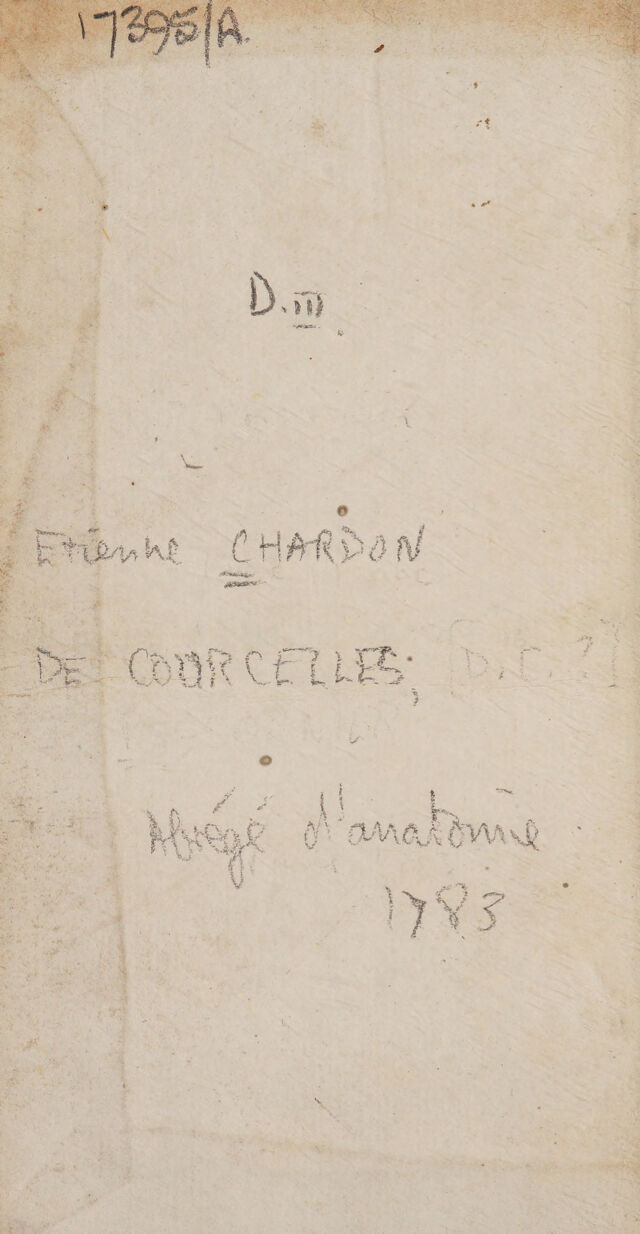 17395/A.
D.III.
Etienne CHARDON
DE COURCELLES; [D.C.?]
Abrégé d'anatomie
1783